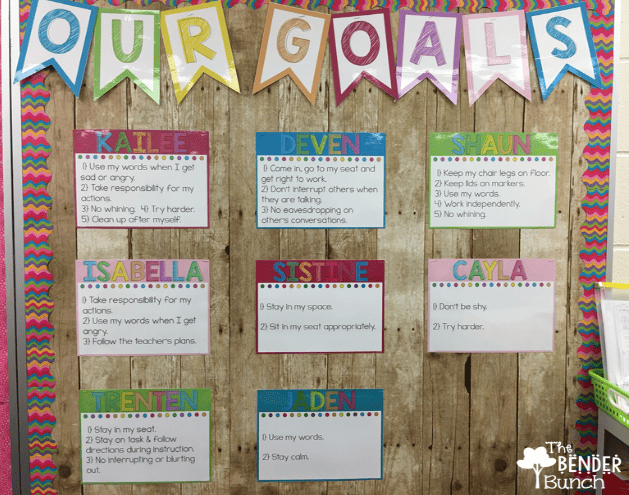 OUR GOALS
KAILEE
1) Use my words when I get
sad or angry.
2) Take responsibility for my
actions.
3) No whining. 4) Try harder.
5) Clean up after myself.
DEVEN
1) Come in, go to my seat and
get right to work.
2) Don't interrupt others when
they are talking.
3) No eavesdropping on
other's conversations.
SHAUN
1) Keep my chair legs on floor.
2) Keep lids on markers.
3) Use my words.
4) Work independently.
5) No whining.
ISABELLA
1) Take responsibility for my
actions.
2) Use my words when I get
angry.
3) Follow the teacher's plans.
SISTINE
1) Stay in my space.
2) Sit in my seat appropriately.
CAYLA
1) Don't be shy.
2) Try harder.
TRENTEN
1) Stay in my seat.
2) Stay on task & follow
directions during instruction.
3) No interrupting or blurting
out.
JADEN
1) Use my words.
2) Stay calm.
The
BENDER
Bunch